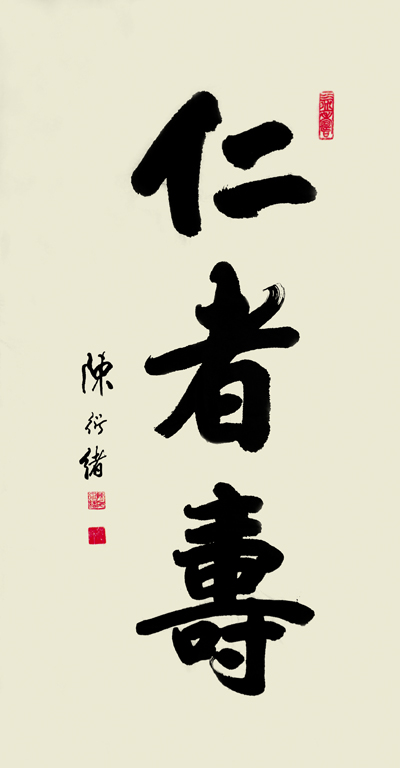 仁者壽
陳衍緒